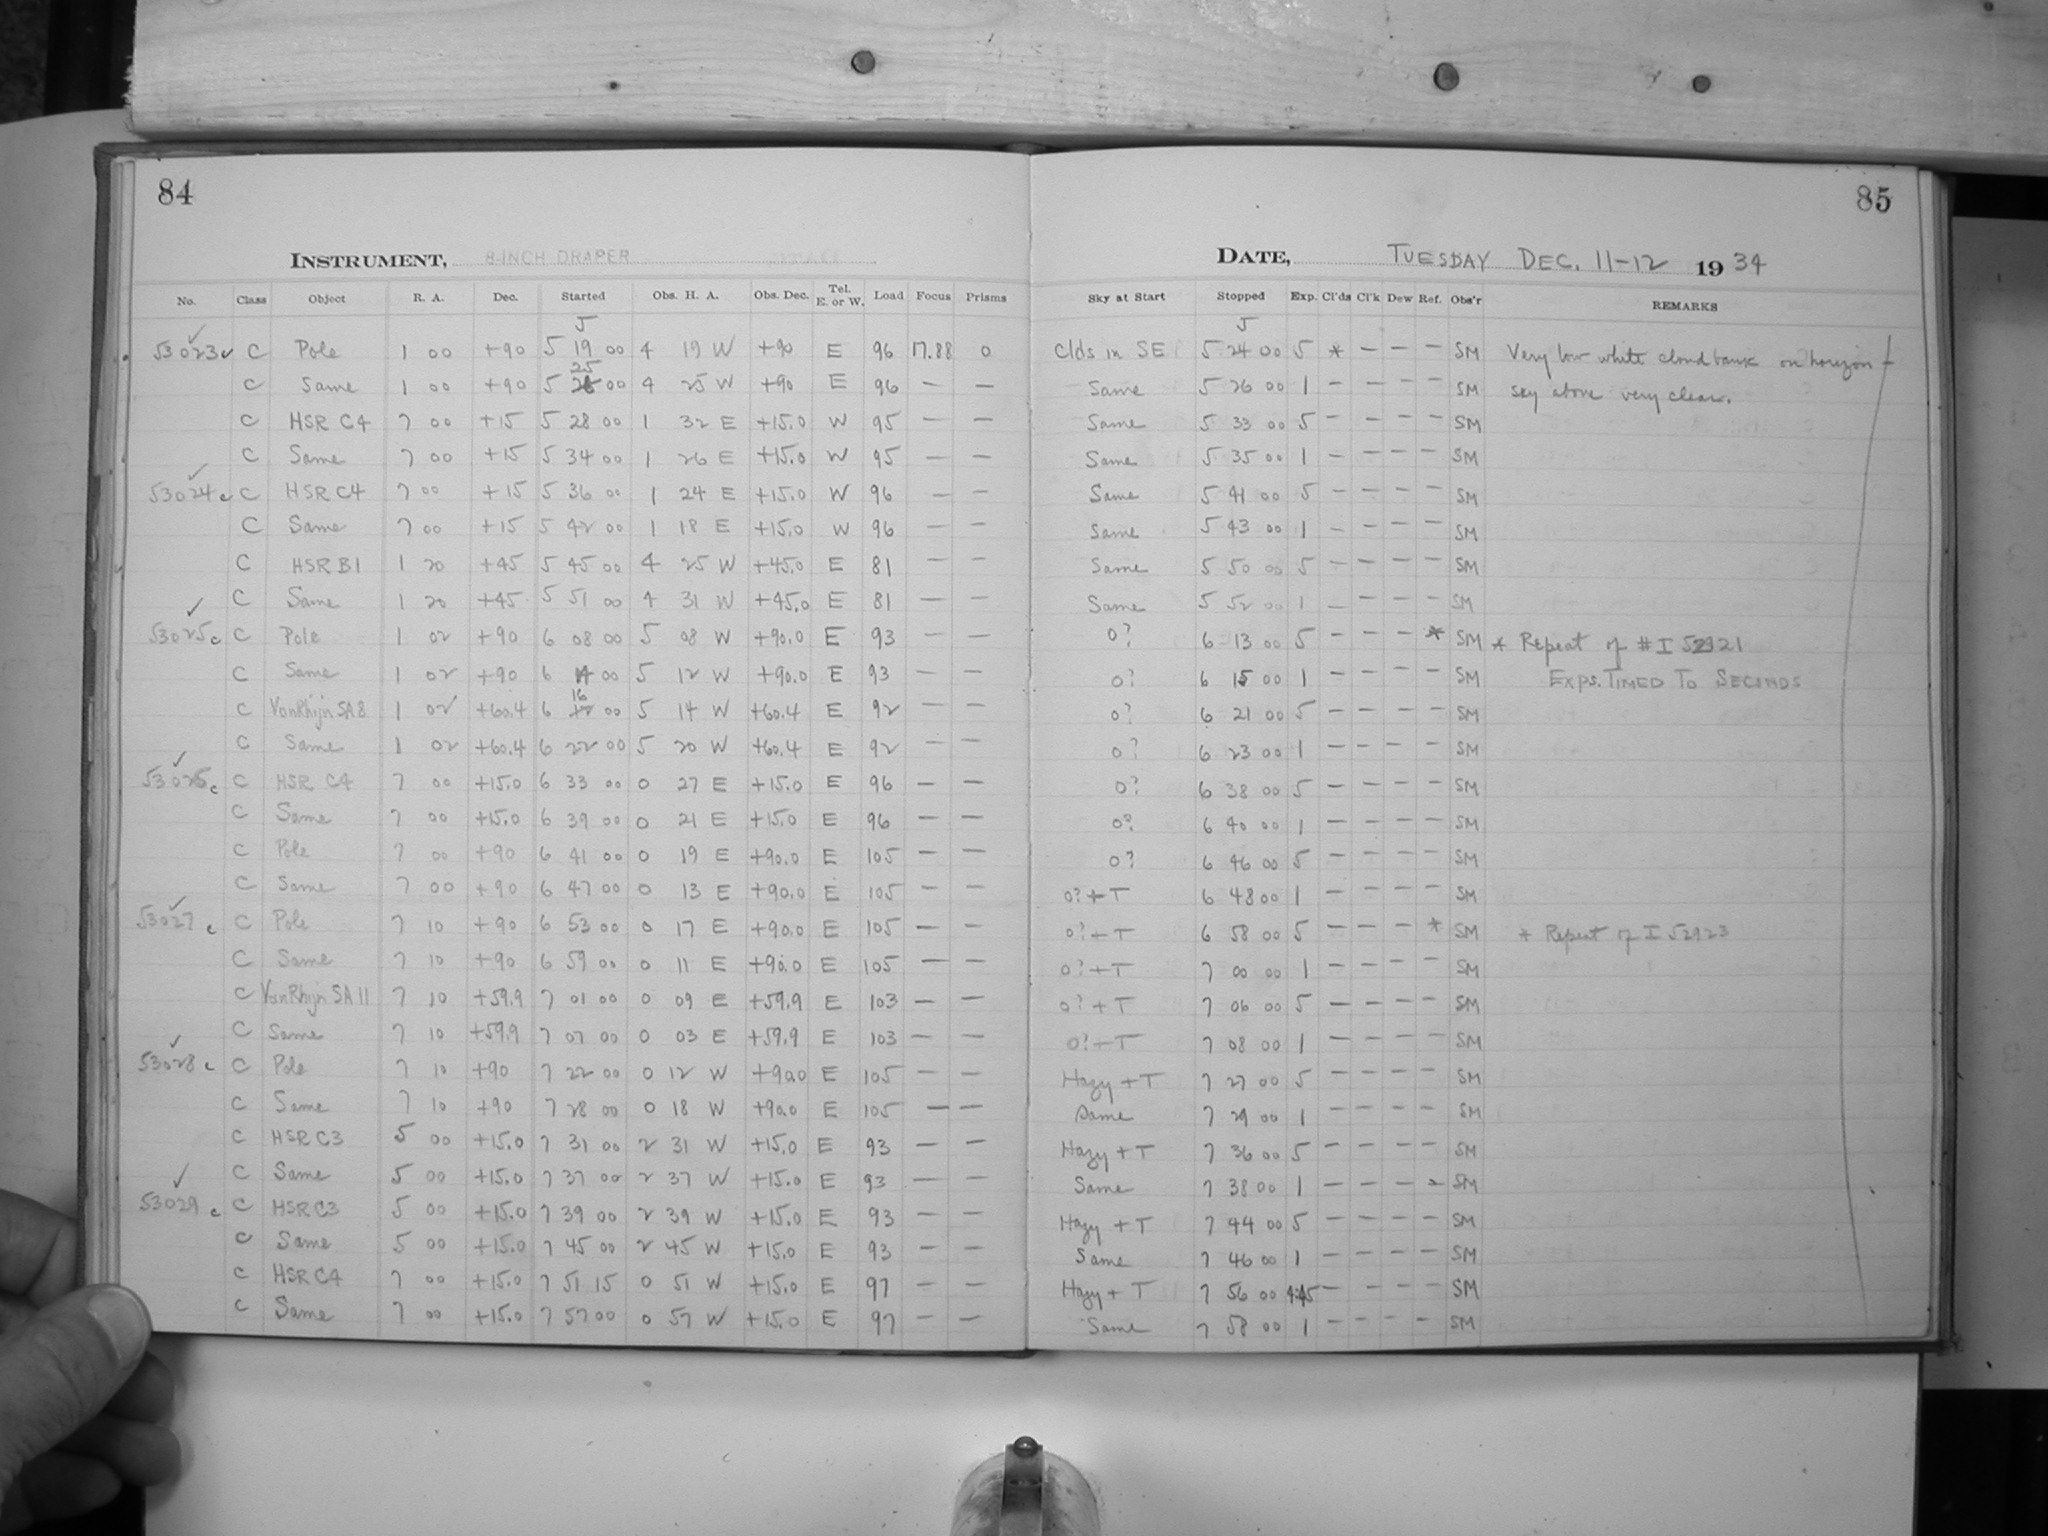 84
85
INSTRUMENT, 8-INCH DRAPER
DATE, TUESDAY DEC. 11-12 1934
No. Class Object R. A. Dec. Started Obs. H. A. Obs. Dec. Tel. E. or W. Load Focus Prisms Sky at Start Stopped Exp. Cl'ds Cl'k Dew Ref. Obs'r REMARKS
5 5
53023 ✓ C Pole 1 00 +90 5 19 00 4 19 W +90 E 96 17.88 0 Clds in SE 5 24 00 5 * – – – SM Very low white cloud bank on horizon –
C Same 1 00 +90 5 25 00 4 25 W +90 E 96 – – Same 5 26 00 1 – – – – SM sky above very clear.
C HSR C4 7 00 +15 5 28 00 1 32 E +15.0 W 95 – – Same 5 33 00 5 – – – – SM
C Same 7 00 +15 5 34 00 1 26 E +15.0 W 95 – – Same 5 35 00 1 – – – – SM
53024 c C HSR C4 7 00 +15 5 36 00 1 24 E +15.0 W 96 – – Same 5 41 00 5 – – – – SM
C Same 7 00 +15 5 42 00 1 18 E +15.0 W 96 – – Same 5 43 00 1 – – – – SM
C HSR B1 1 20 +45 5 45 00 4 25 W +45.0 E 81 – – Same 5 50 00 5 – – – – SM
C Same 1 20 +45 5 51 00 4 31 W +45.0 E 81 – – Same 5 52 00 1 – – – – SM
53025 c C Pole 1 02 +90 6 08 00 5 08 W +90.0 E 93 – – 0? 6 13 00 5 – – – * SM * Repeat of # I 52921
C Same 1 02 +90 6 14 00 5 12 W +90.0 E 93 – – 0? 6 15 00 1 – – – – SM EXPS. TIMED TO SECONDS
C Van Rhijn SA 8 1 02 +60.4 6 16 00 5 14 W +60.4 E 92 – – 0? 6 21 00 5 – – – – SM
C Same 1 02 +60.4 6 22 00 5 20 W +60.4 E 92 – – 0? 6 23 00 1 – – – – SM
53026 c C HSR C4 7 00 +15.0 6 33 00 0 27 E +15.0 E 96 – – 0? 6 38 00 5 – – – – SM
C Same 7 00 +15.0 6 39 00 0 21 E +15.0 E 96 – – 0? 6 40 00 1 – – – – SM
C Pole 7 00 +90 6 41 00 0 19 E +90.0 E 105 – – 0? 6 46 00 5 – – – – SM
C Same 7 00 +90 6 47 00 0 13 E +90.0 E 105 – – 0?+T 6 48 00 1 – – – – SM
53027 c C Pole 7 10 +90 6 53 00 0 17 E +90.0 E 105 – – 0?+T 6 58 00 5 – – – * SM * Repeat of I 52923
C Same 7 10 +90 6 59 00 0 11 E +90.0 E 105 – – 0?+T 7 00 00 1 – – – – SM
C Van Rhijn SA 11 7 10 +59.9 7 01 00 0 09 E +59.9 E 103 – – 0?+T 7 06 00 5 – – – – SM
C Same 7 10 +59.9 7 07 00 0 03 E +59.9 E 103 – – 0?+T 7 08 00 1 – – – – SM
53028 c C Pole 7 10 +90 7 22 00 0 12 W +90.0 E 105 – – Hazy + T 7 27 00 5 – – – – SM
C Same 7 10 +90 7 28 00 0 18 W +90.0 E 105 – – Same 7 29 00 1 – – – – SM
C HSR C3 5 00 +15.0 7 31 00 2 31 W +15.0 E 93 – – Hazy + T 7 36 00 5 – – – – SM
C Same 5 00 +15.0 7 37 00 2 37 W +15.0 E 93 – – Same 7 38 00 1 – – – – SM
53029 c C HSR C3 5 00 +15.0 7 39 00 2 39 W +15.0 E 93 – – Hazy + T 7 44 00 5 – – – – SM
C Same 5 00 +15.0 7 45 00 2 45 W +15.0 E 93 – – Same 7 46 00 1 – – – – SM
C HSR C4 7 00 +15.0 7 51 15 0 51 W +15.0 E 97 – – Hazy + T 7 56 00 4:45 – – – – SM
C Same 7 00 +15.0 7 57 00 0 57 W +15.0 E 97 – – Same 7 58 00 1 – – – – SM